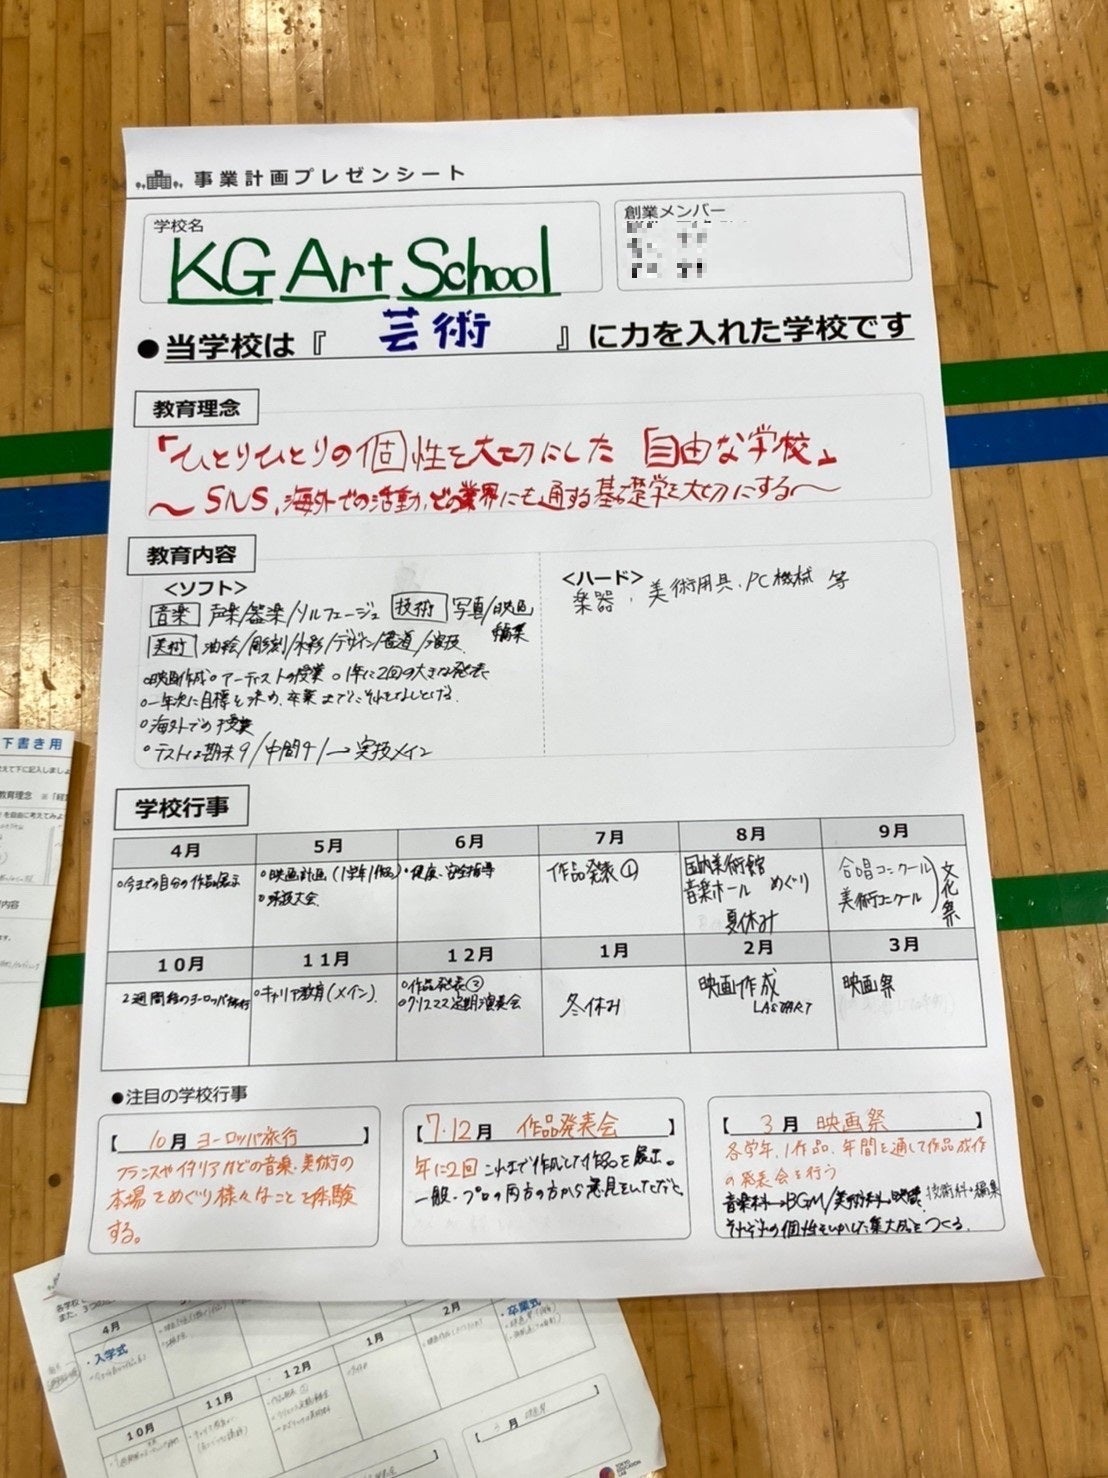 事業計画プレゼンシート
学校名
KG Art School
創業メンバー
●当学校は『 芸術 』に力を入れた学校です
教育理念
「ひとりひとりの個性を大切にした 自由な学校」
〜SNS、海外での活動、どの業界にも通ずる基礎学を大切にする〜
教育内容
<ソフト>
音楽 声楽/器楽/ソルフェージュ 技術 写真/映画
編集
美術 油絵/彫刻/水彩/デザイン/書道/演技
○映画作成 ○アーティストの授業 ○1年に2回の大きな発表
○一年次に目標を決め、卒業までにそれをなしとげる。
○海外での授業
○テストは期末9/中間9/→実技メイン
<ハード>
楽器、美術用具、PC機械 等
学校行事
4月 5月 6月 7月 8月 9月
○今までの自分の作品展示
○映画計画(1学年1作品)
○球技大会
○健康、安全指導
作品発表①
国内美術館
音楽ホール めぐり
夏休み
合唱コンクール
美術コンクール
文化祭
10月 11月 12月 1月 2月 3月
2週間程のヨーロッパ旅行
○キャリア教育(メイン)
○作品発表②
○クリスマス定期演奏会
冬休み
映画作成
映画祭
●注目の学校行事
【 10月 ヨーロッパ旅行 】
フランスやイタリアなどの音楽、美術の
本場をめぐり様々なことを体験
する。
【 7・12月 作品発表会 】
年に2回 これまで作成した作品を展示。
一般・プロの両方の方から意見をいただく。
【 3月 映画祭 】
各学年、1作品、年間を通して作品成作
の発表会を行う
音楽科→BGM/美術科→映像 技術科→編集
それぞれの個性をいかした集大成をつくる。
下書き用
教育理念
4月
・入学式
10月
11月
12月
1月
2月
・卒業式
月